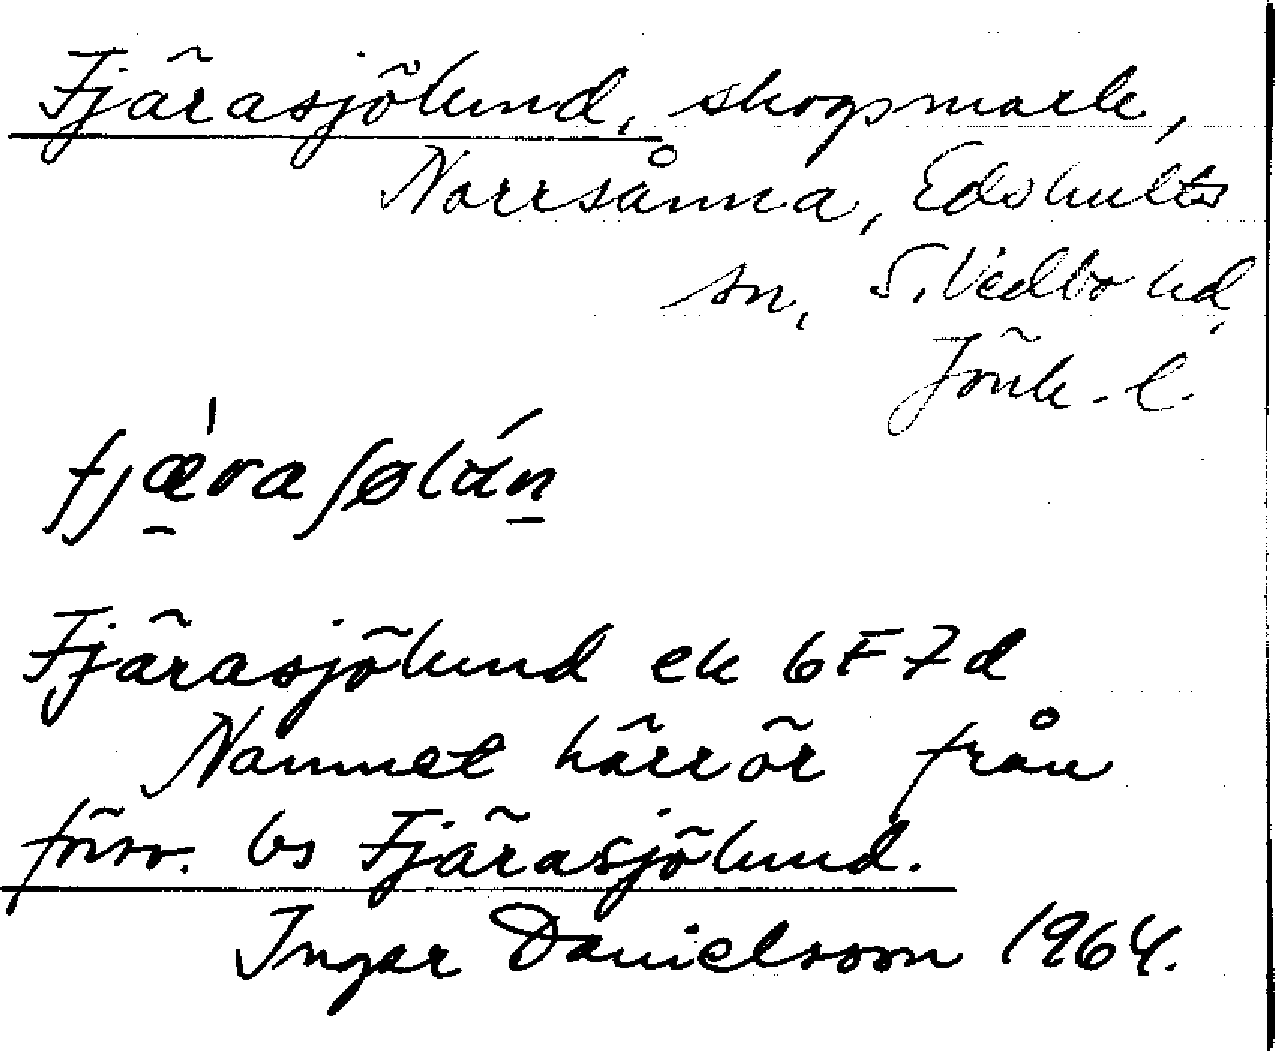 Fjärasjölund, skogsmark,
Norrsånna, Edshults
sn, S. Vedbo hd,
Jönk. l.
fjæ̀raʃøláṉ
Fjärasjölund ek 6F7d
Namnet härrör från
försv. bs Fjärasjölund.
Ingar Danielsson 1964.